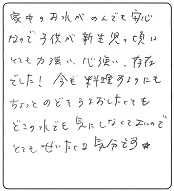 家中のお水がのんでも安心
なので子供が新生児の頃は
とても力強い、心強い、存在
でした！今も料理するにも
ちょっとのどをうるおしたくても
どこの水でも気にしなくてよいので
とてもぜいたくな気分です☆